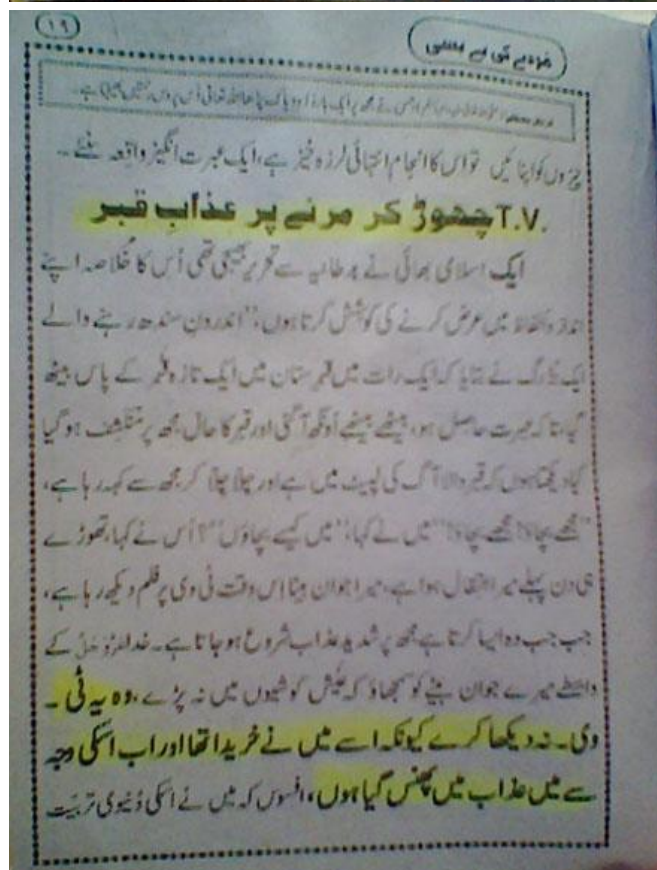 ۱۹
مُردے کی بے بسی
چیزوں کو اپنائیں تو اس کا انجام انتہائی لرزہ خیز ہے، ایک عبرت انگیز واقعہ سنئے۔
T.V. چھوڑ کر مرنے پر عذابِ قبر
ایک اسلامی بھائی نے برطانیہ سے تحریر بھیجی تھی اُس کا خُلاصہ اپنے
انداز و الفاظ میں عرض کرنے کی کوشش کرتا ہوں، "اندرونِ سندھ رہنے والے
ایک بُزُرگ نے بتایا کہ ایک رات میں قبرستان میں ایک تازہ قبر کے پاس بیٹھ
گیا، تاکہ عبرت حاصل ہو، بیٹھے بیٹھے اُونگھ آ گئی اور قبر کا حال مجھ پر منکشف ہو گیا
کیا دیکھتا ہوں کہ قبر والا آگ کی لپیٹ میں ہے اور چلّا چلّا کر مجھ سے کہہ رہا ہے،
"مجھے بچاؤ! مجھے بچاؤ!" میں نے کہا، "میں کیسے بچاؤں"؟ اُس نے کہا، تھوڑے
ہی دن پہلے میرا انتقال ہوا ہے، میرا جوان بیٹا اِس وقت ٹی وی پر فلم دیکھ رہا ہے،
جب جب وہ ایسا کرتا ہے مجھ پر شدید عذاب شروع ہو جاتا ہے۔ خدا عَزَّوَجَلَّ کے
واسطے میرے جوان بیٹے کو سمجھاؤ کہ عیش کوشیوں میں نہ پڑے، وہ یہ ٹی۔
وی۔ نہ دیکھا کرے کیونکہ اسے میں نے خریدا تھا اور اب اسکی وجہ
سے میں عذاب میں پھنس گیا ہوں، افسوس کہ میں نے اسکی دُنیوی تربیت